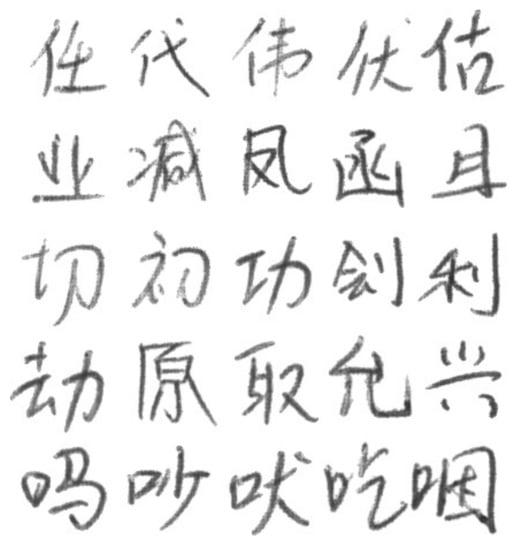 任代伟伏估
业减凤函且
切初功刽利
劫原取允兴
吗吵吠吃咽